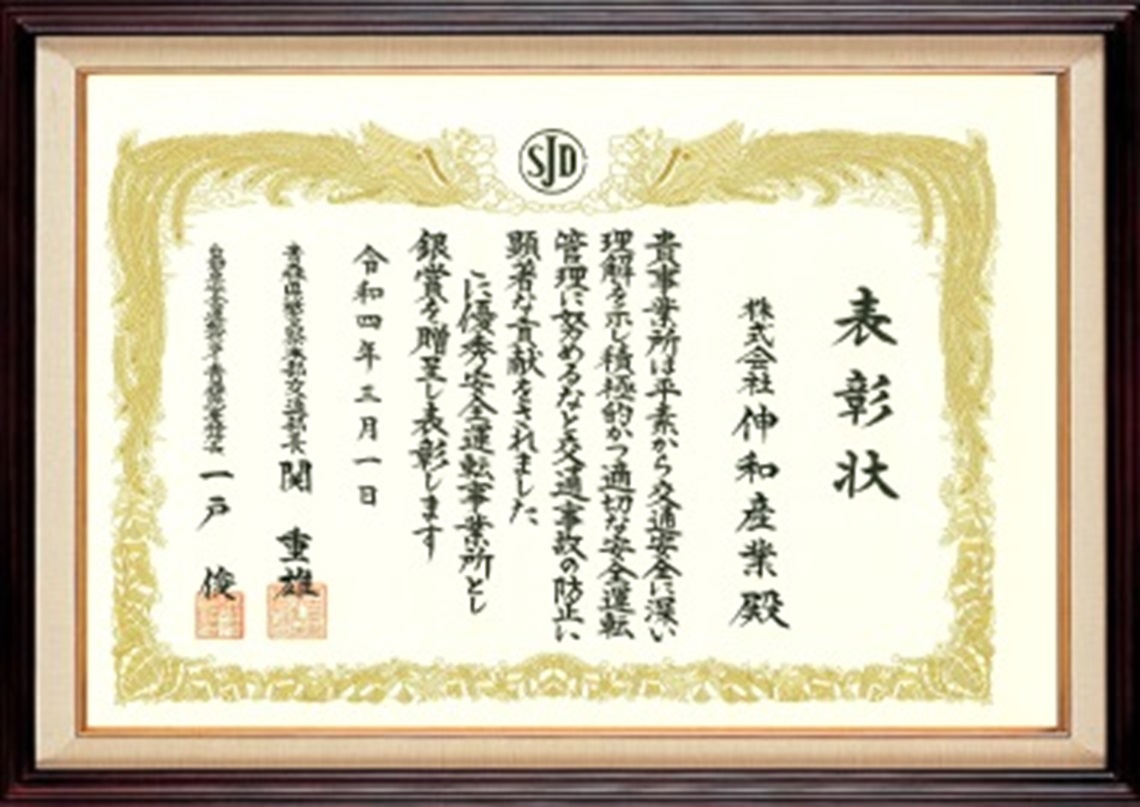 SJD
表彰状
株式会社伸和産業殿
貴事業所は平素から交通安全に深い
理解を示し積極的かつ適切な安全運転
管理に努めるなど交通事故の防止に
顕著な貢献をされました
ここに優秀安全運転事業所とし
銀賞を贈呈し表彰します
令和四年三月一日
青森県警察本部交通部長 関 重雄
自動車安全運転センター青森県事務所長 一戸 俊